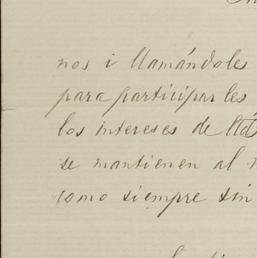 nos i llamándoles
para participarles
los intereses de
se mantienen al
como siempre sin